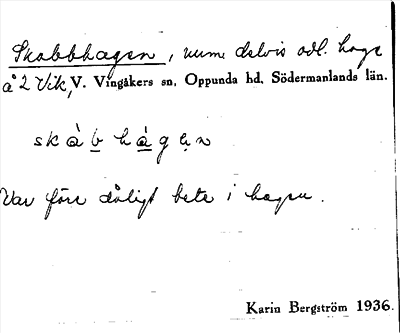 Skabbhagen, num. delvis odl. hage
å 2 Vik, V. Vingåkers sn, Oppunda hd, Södermanlands län.
skàbhàgen
Var före dåligt bete i hagen.
Karin Bergström 1936.